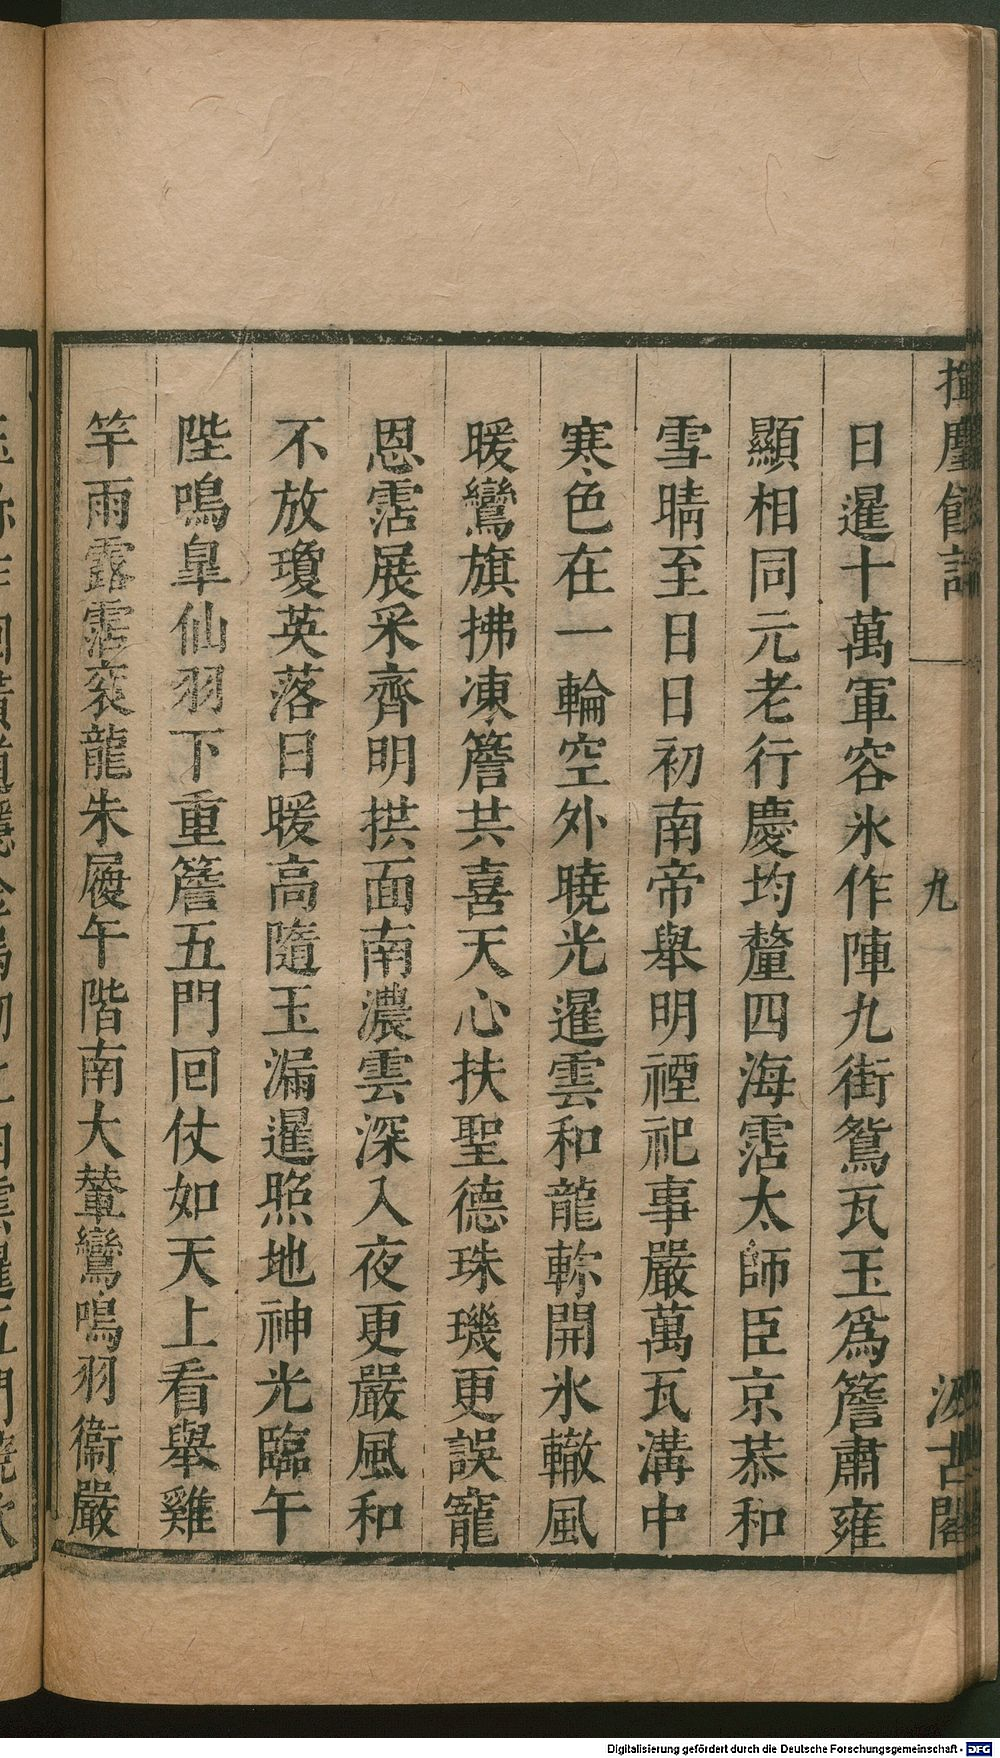 揮麈餘話
九
汲古閣
日暹十萬軍容氷作陣九街鴛瓦玉爲簷肅雍
顯相同元老行慶均釐四海霑太師臣京恭和
雪晴至日日初南帝舉明禋祀事嚴萬瓦溝中
寒色在一輪空外曉光暹雲和龍軫開氷轍風
暖鸞旗拂凍簷共喜天心扶聖德珠璣更誤寵
恩霑展采齊明拱面南濃雲深入夜更嚴風和
不放瓊英落日暖高隨玉漏暹照地神光臨午
陛鳴臯仙羽下重簷五門回仗如天上看舉雞
竿雨露霑衮龍朱履午階南大輦鸞鳴羽衞嚴
Digitalisierung gefördert durch die Deutsche Forschungsgemeinschaft - DFG